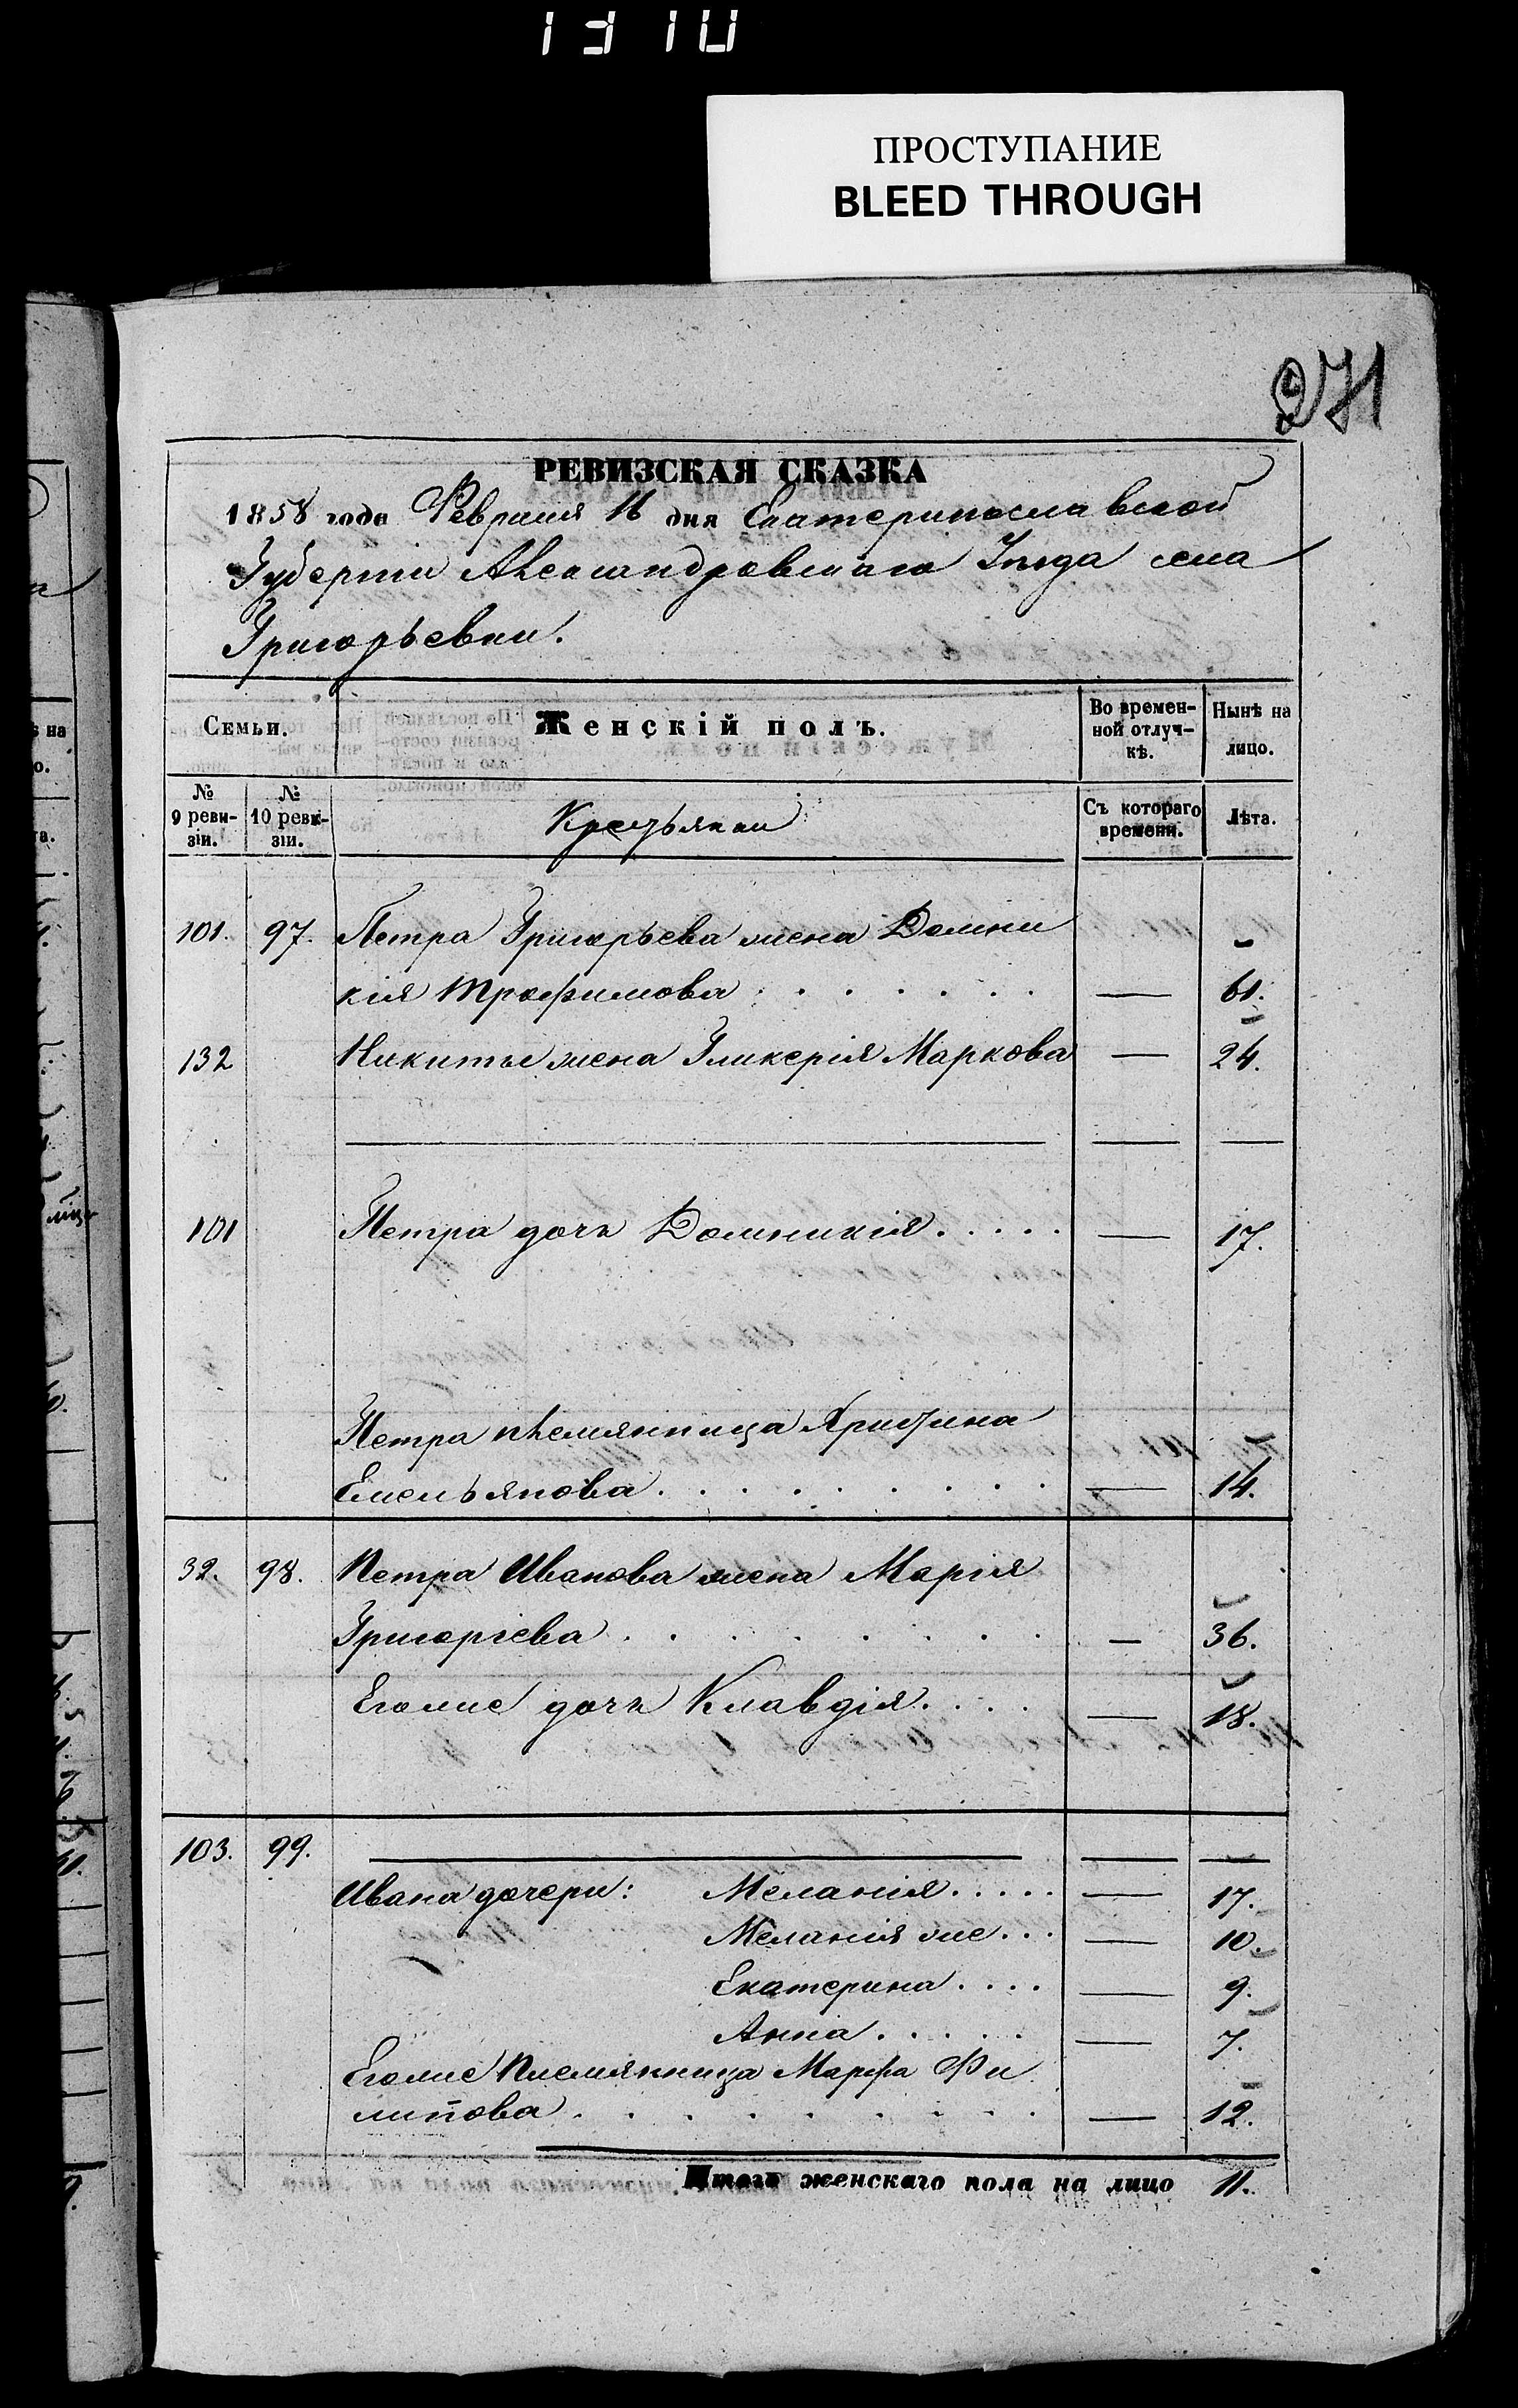 1310
ПРОСТУПАНИЕ
BLEED THROUGH
271
РЕВИЗСКАЯ СКАЗКА
1858 года Февраля 16 дня Екатеринославской
Губернiи Александровскаго Уѣзда села
Григорьевки.
Семьи. Женскій полъ. Во времен-ной отлуч-кѣ. Нынѣ на лицо.
№ 9 реви-зіи. № 10 реви-зіи. Крестьянки Съ котораго времени. Лѣта.
101. 97. Петра Григорьева жена Домни
кія Трофимова . . . . . . — 61.
132 Никиты жена Гликерія Маркова — 24.
101 Петра дочь Домникія . . . . . — 17.
Петра племянница Христина
Емельянова . . . . . . . . — 14.
32. 98. Петра Иванова жена Марія
Григоріева . . . . . . . . — 36.
Егоже дочь Клавдія . . . . — 18.
103. 99. — — —
Ивана дочери: Меланія . . . . . — 17.
Меланія же . . . — 10.
Екатерина . . . . — 9.
Анна . . . . . — 7.
Егоже Племянница Марфа Фи
липова . . . . . . . . . — 12.
Итого женскаго пола на лицо 11.